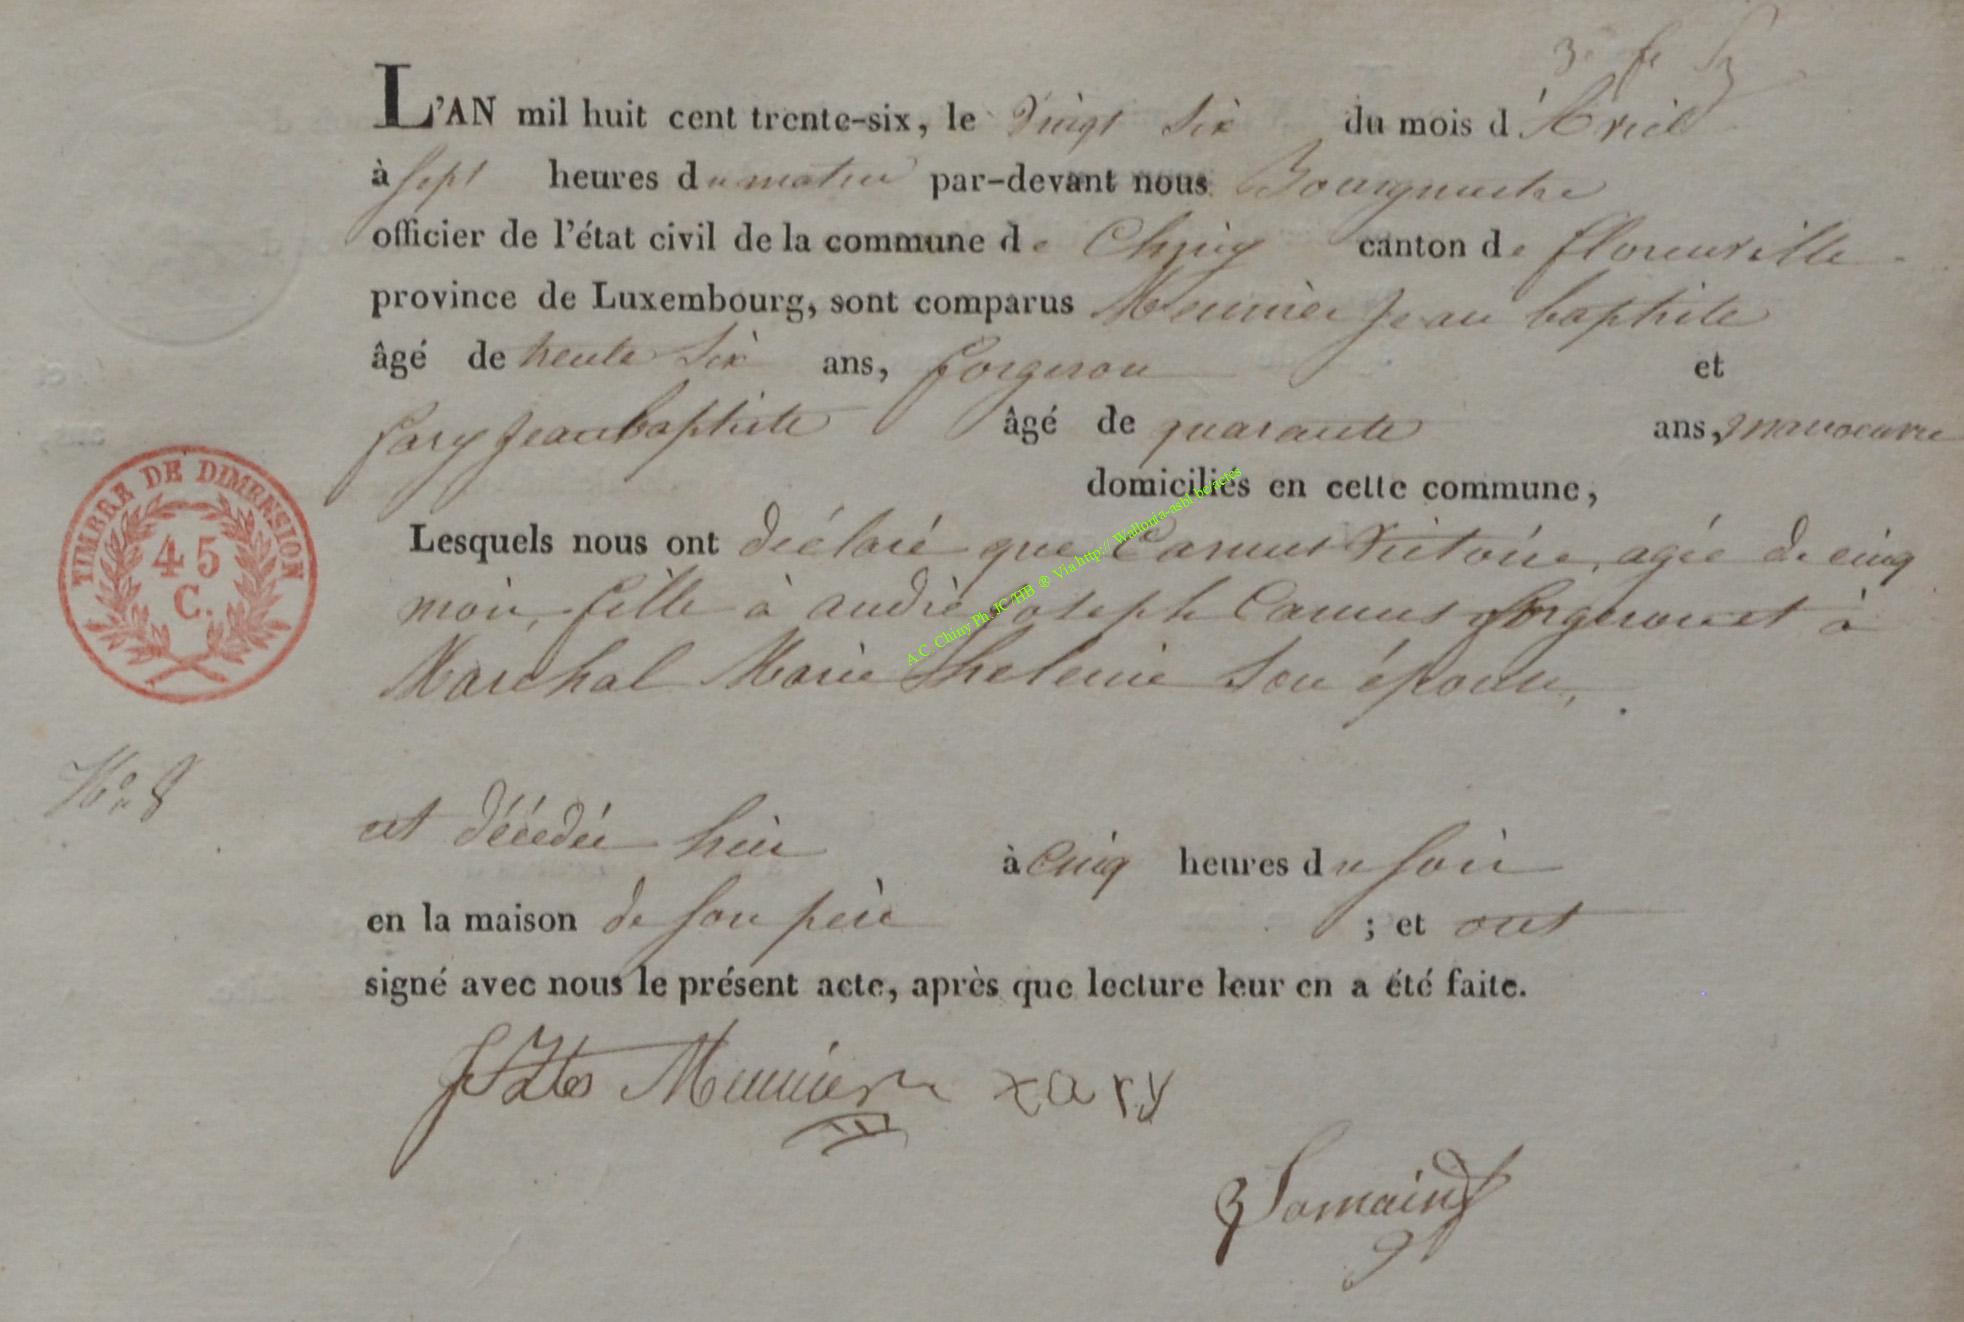 L'AN mil huit cent trente-six, le vingt six du mois d'Avril
à sept heures du matin par-devant nous Bourgmestre
officier de l'état civil de la commune de Chiny canton de florenville
province de Luxembourg, sont comparus Meunier Jean baptiste
âgé de trente six ans, forgeron et
Jary Jean baptiste âgé de quarante ans, manoeuvre
domiciliés en cette commune,
Lesquels nous ont déclaré que Camus Victoire, agée de cinq
mois, fille à andré joseph Camus forgeron et à
Marchal Marie helene son épouse,
TIMBRE DE DIMENSION
45
C.
A.C. Chiny Ph. JC /HB ® Via http:// Wallonia-asbl be/actes
No 8
est décédée hier à cinq heures du soir
en la maison de son père ; et ont
signé avec nous le présent acte, après que lecture leur en a été faite.
Meunier xary